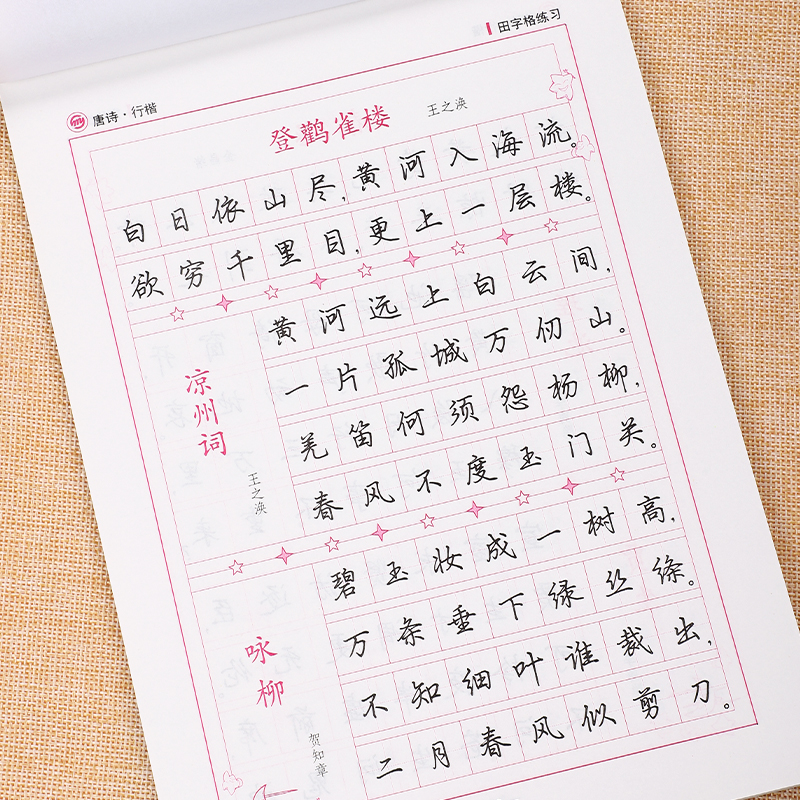 田字格练习
唐诗·行楷
登鹳雀楼
王之涣
白日依山尽,黄河入海流。
欲穷千里目,更上一层楼。
凉州词
王之涣
黄河远上白云间,
一片孤城万仞山。
羌笛何须怨杨柳,
春风不度玉门关。
咏柳
贺知章
碧玉妆成一树高,
万条垂下绿丝绦。
不知细叶谁裁出,
二月春风似剪刀。